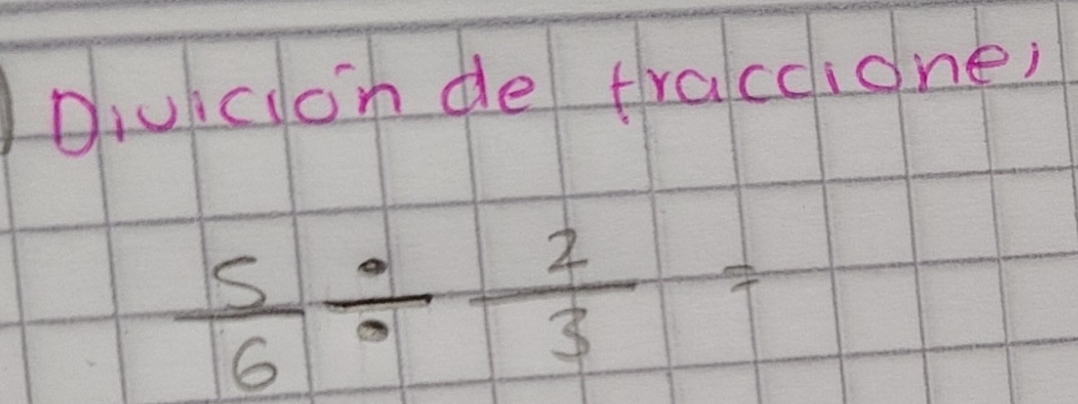 Divición de fracciones
5/6 ÷ 2/3 =